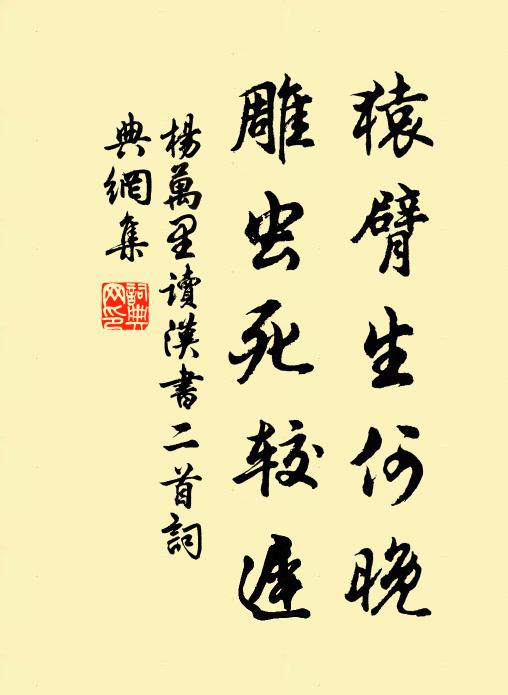 猿臂生何晚
雕虫死较遲
楊萬里讀漢書二首詞
典網集
詞典
网印